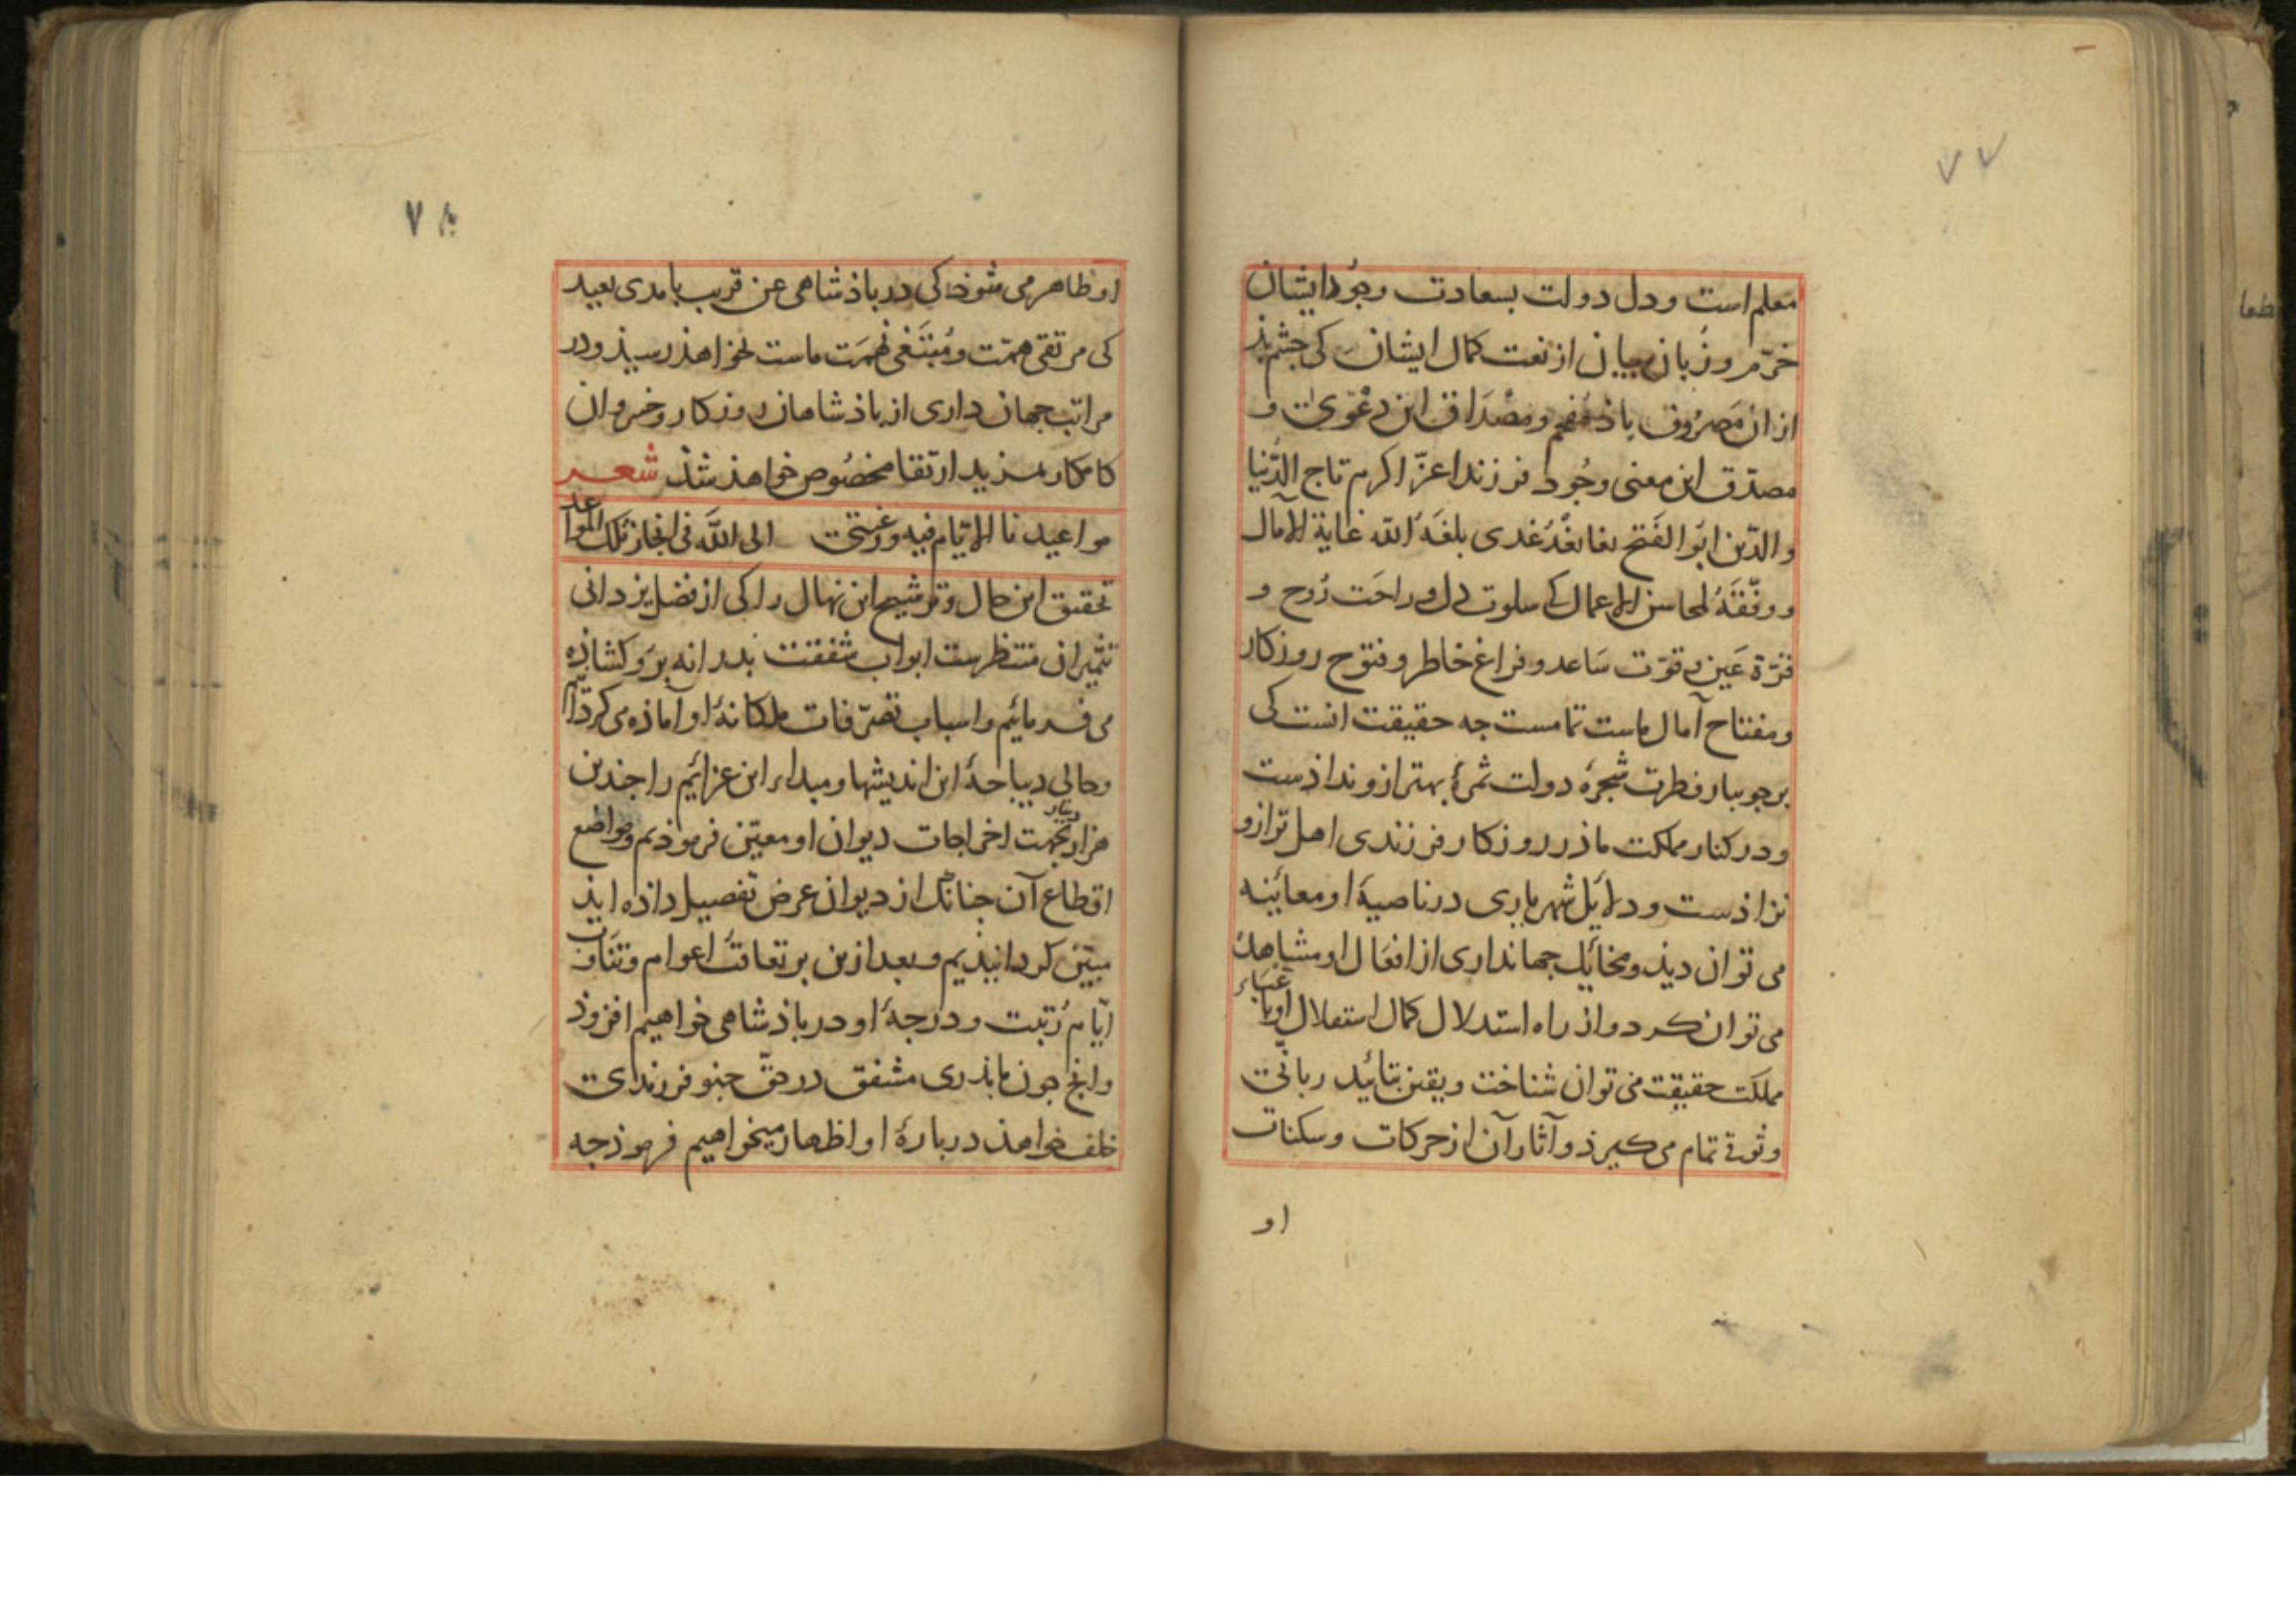 ۷۷
معلم است و دل دولت بسعادت وجُود ایشان
خرّم و زبان بیان از نعت کمال ایشان کی جشم بذ
از ان مَصرُوف باذ مُفحم و مِصْدَاق این دعْوی و
مصدّق این معنی وجُود فرزند اعزّ اکرم تاج الدّنیا
والدّین ابُو الفَتح بلغَهُ اللّه غایة الآمال
و وفّقهُ لمحاسن الاعمال کی سلوت دل و راحَت رُوح و
قرّة عَین و قوّت سَاعد و فراغ خاطر و فتوح روزکار
و مفتاح آمال ماست تمامست جه حقیقت انست کی
بر جویبار فطرت شجرهٔ دولت ثمرهٔ بهتر ازو نداذست
و در کنار مملکت ماذر روزکار فرزندی اهل تر ازو
نزاذست و دلایل شهریاری در ناصیهٔ او معاینه
می توان دیذ و مخایل جهانداری از افعال او مشاهده
می توان کرد و از راه استدلال کمال استقلال او باعباء
مملکت حقیقت می توان شناخت و یقین بتائید ربانی
و ثوق تمام می کیرذ و آثار آن از حرکات و سکنات
او
۷۸
او ظاهر می شوذ کی در باذشاهی عن قریب بامدی بعید
کی مرتقی همّت و مُبتَغی نهمَت ماست بخواهذ رسیذ و در
مراتب جهان داری از باذشاهان روزکار و خسروان
کامکار بمزید ارتقا مخصُوص خواهذ شذ شعر
مواعید نا الایّام فیه و رغبتی الی اللّه فی انجاز تلک المواعد
تحقیق این حال و ترشیح این نهال را کی از فضل یزدانی
تثمیر ان منتظرست ابواب شفقت بدرانه برو کشاذه
می فرمائیم و اسباب تصرّفات ملکانهٔ او آماذه می کردانیم
و حالی دیباجهٔ این اندیشها و مبداء این عزائم را جندین
هزار دینار بجهت اخراجات دیوان او معیّن فرموذیم و مواضع
اقطاع آن جنانک از دیوان عرض تفصیل داذه ایذ
مبیّن کردانیذیم و بعد ازین بر تعاقب اعوام و تناوب
ایّام رُتبت و درجهٔ او در باذشاهی خواهیم افزوذ
و انج جون ما بذری مشفق در حقّ جنو فرزندی
خلف خواهذ دربارهٔ او اظهار میخواهیم فرموذ جه